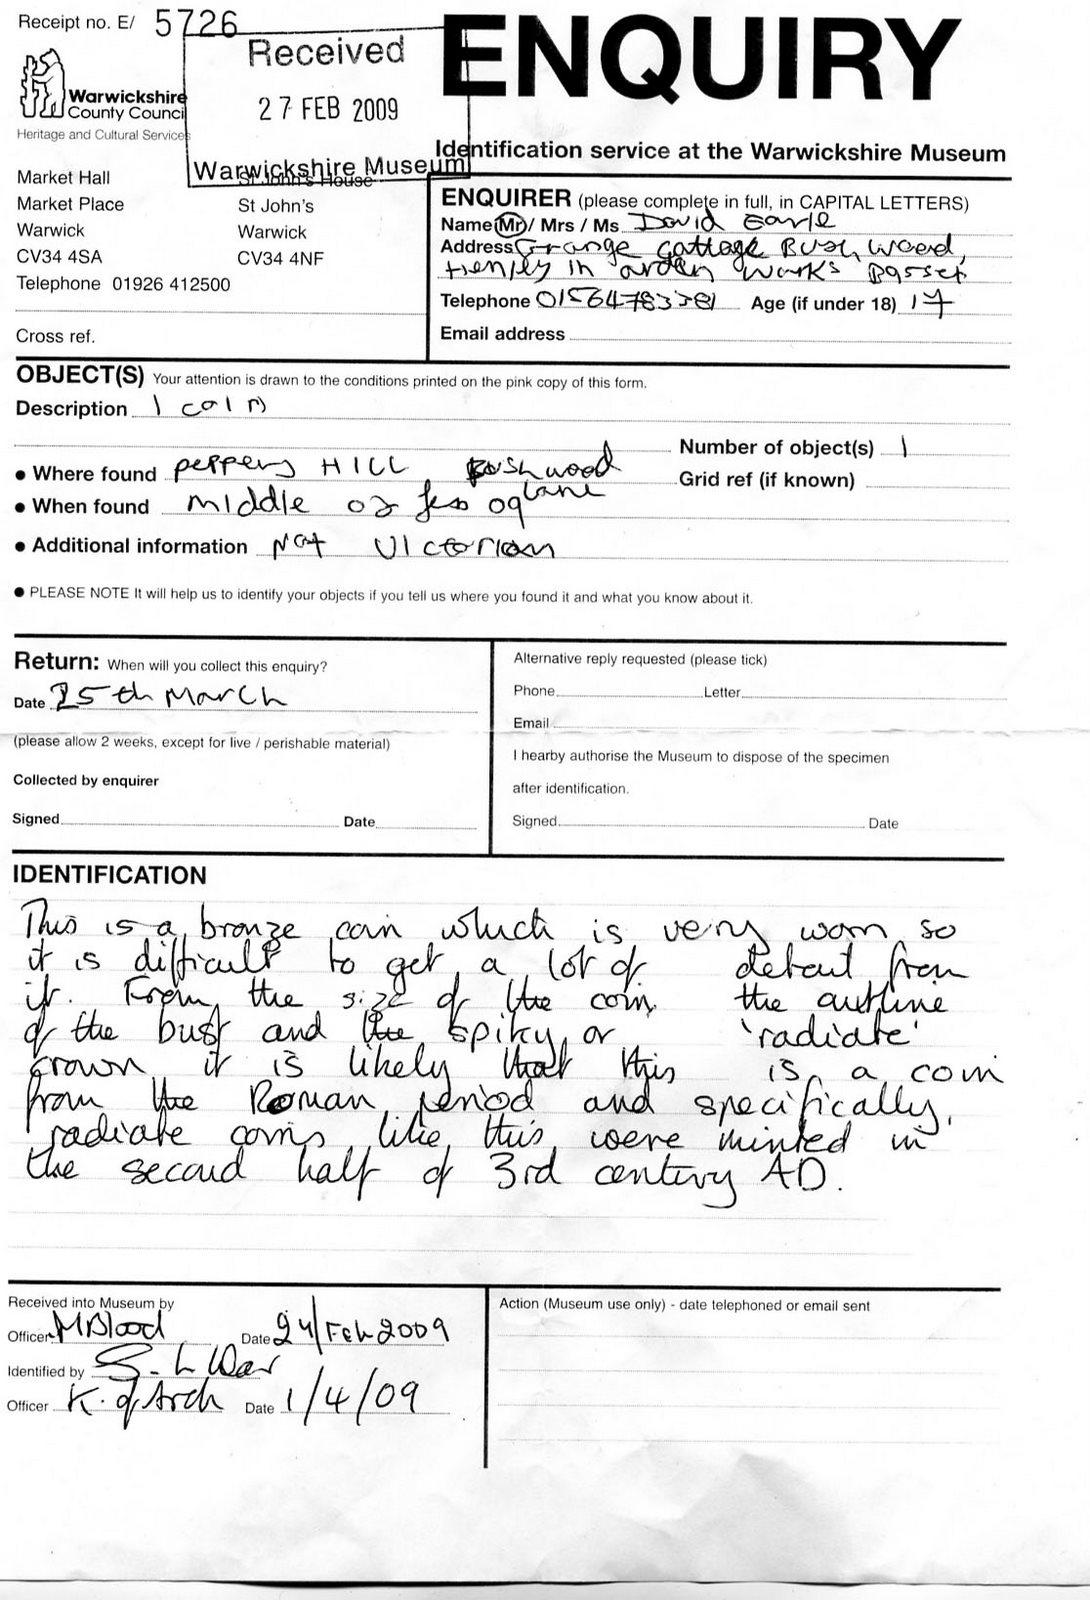 Receipt no. E/ 5726
Received
27 FEB 2009
Warwickshire Museum
ENQUIRY
Warwickshire
County Council
Heritage and Cultural Services
Identification service at the Warwickshire Museum
Market Hall
Market Place
Warwick
CV34 4SA
St John's House
St John's
Warwick
CV34 4NF
Telephone 01926 412500
Cross ref.
ENQUIRER (please complete in full, in CAPITAL LETTERS)
Name Mr / Mrs / Ms David Earle
Address Grange Cottage Bush wood,
Henley in arden
Telephone 01564783381 Age (if under 18) 17
Email address
OBJECT(S) Your attention is drawn to the conditions printed on the pink copy of this form.
Description 1 coin
Number of object(s) 1
• Where found peppers HILL Bushwood lane
Grid ref (if known)
• When found Middle of feb 09
• Additional information Not Victorian
• PLEASE NOTE It will help us to identify your objects if you tell us where you found it and what you know about it.
Return: When will you collect this enquiry?
Date 25th March
(please allow 2 weeks, except for live / perishable material)
Collected by enquirer
Signed Date
Alternative reply requested (please tick)
Phone Letter
Email
I hearby authorise the Museum to dispose of the specimen
after identification.
Signed Date
IDENTIFICATION
This is a bronze coin which is very worn so
it is difficult to get a lot of detail from
it. From the size of the coin, the outline
of the bust and the spiky or 'radiate'
crown it is likely that this is a coin
from the Roman period and specifically,
radiate coins like this were minted in
the second half of 3rd century AD.
Received into Museum by
Officer M Blood Date 24/Feb 2009
Identified by
Officer K. of Arch Date 1/4/09
Action (Museum use only) - date telephoned or email sent